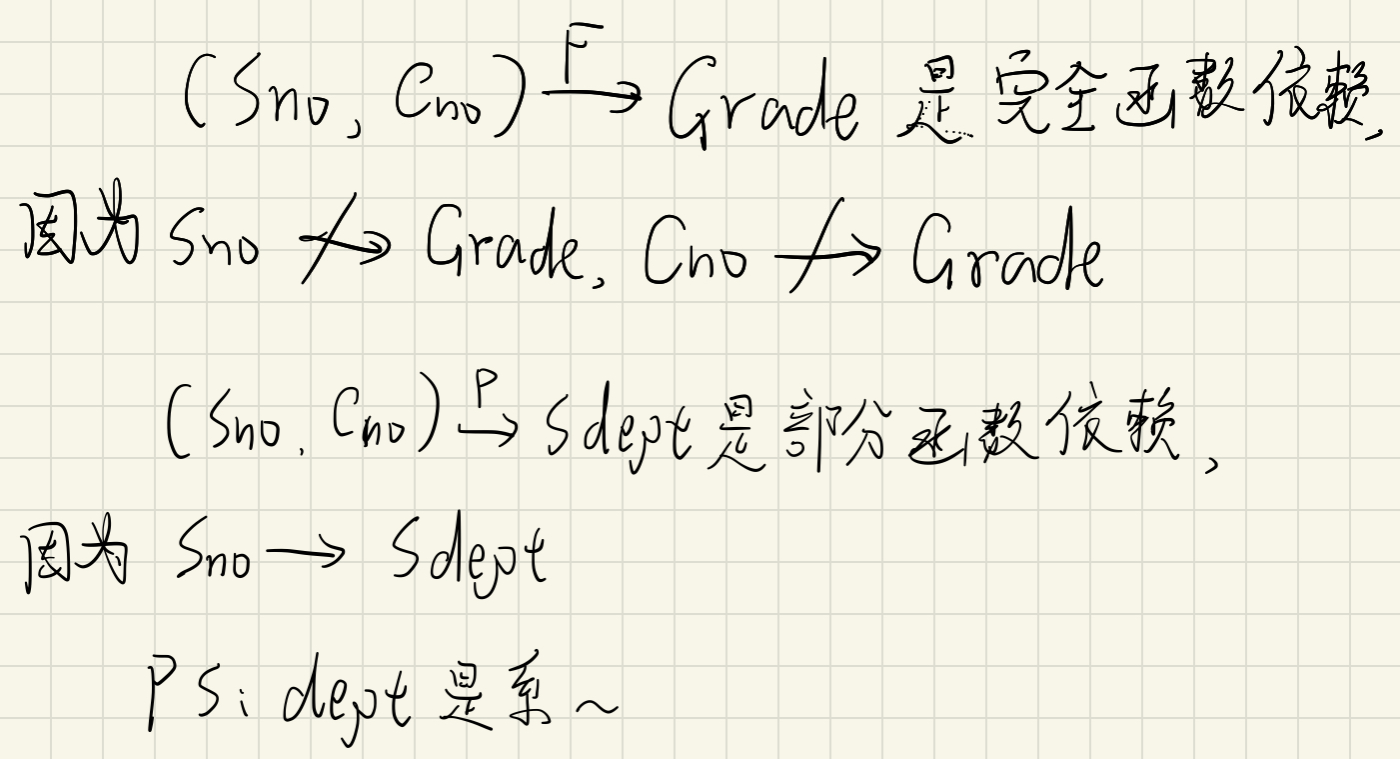 (Sno, Cno) F→ Grade 是完全函数依赖,
因为 Sno ↛ Grade, Cno ↛ Grade
(Sno, Cno) P→ Sdept 是部分函数依赖,
因为 Sno → Sdept
PS: dept 是系~